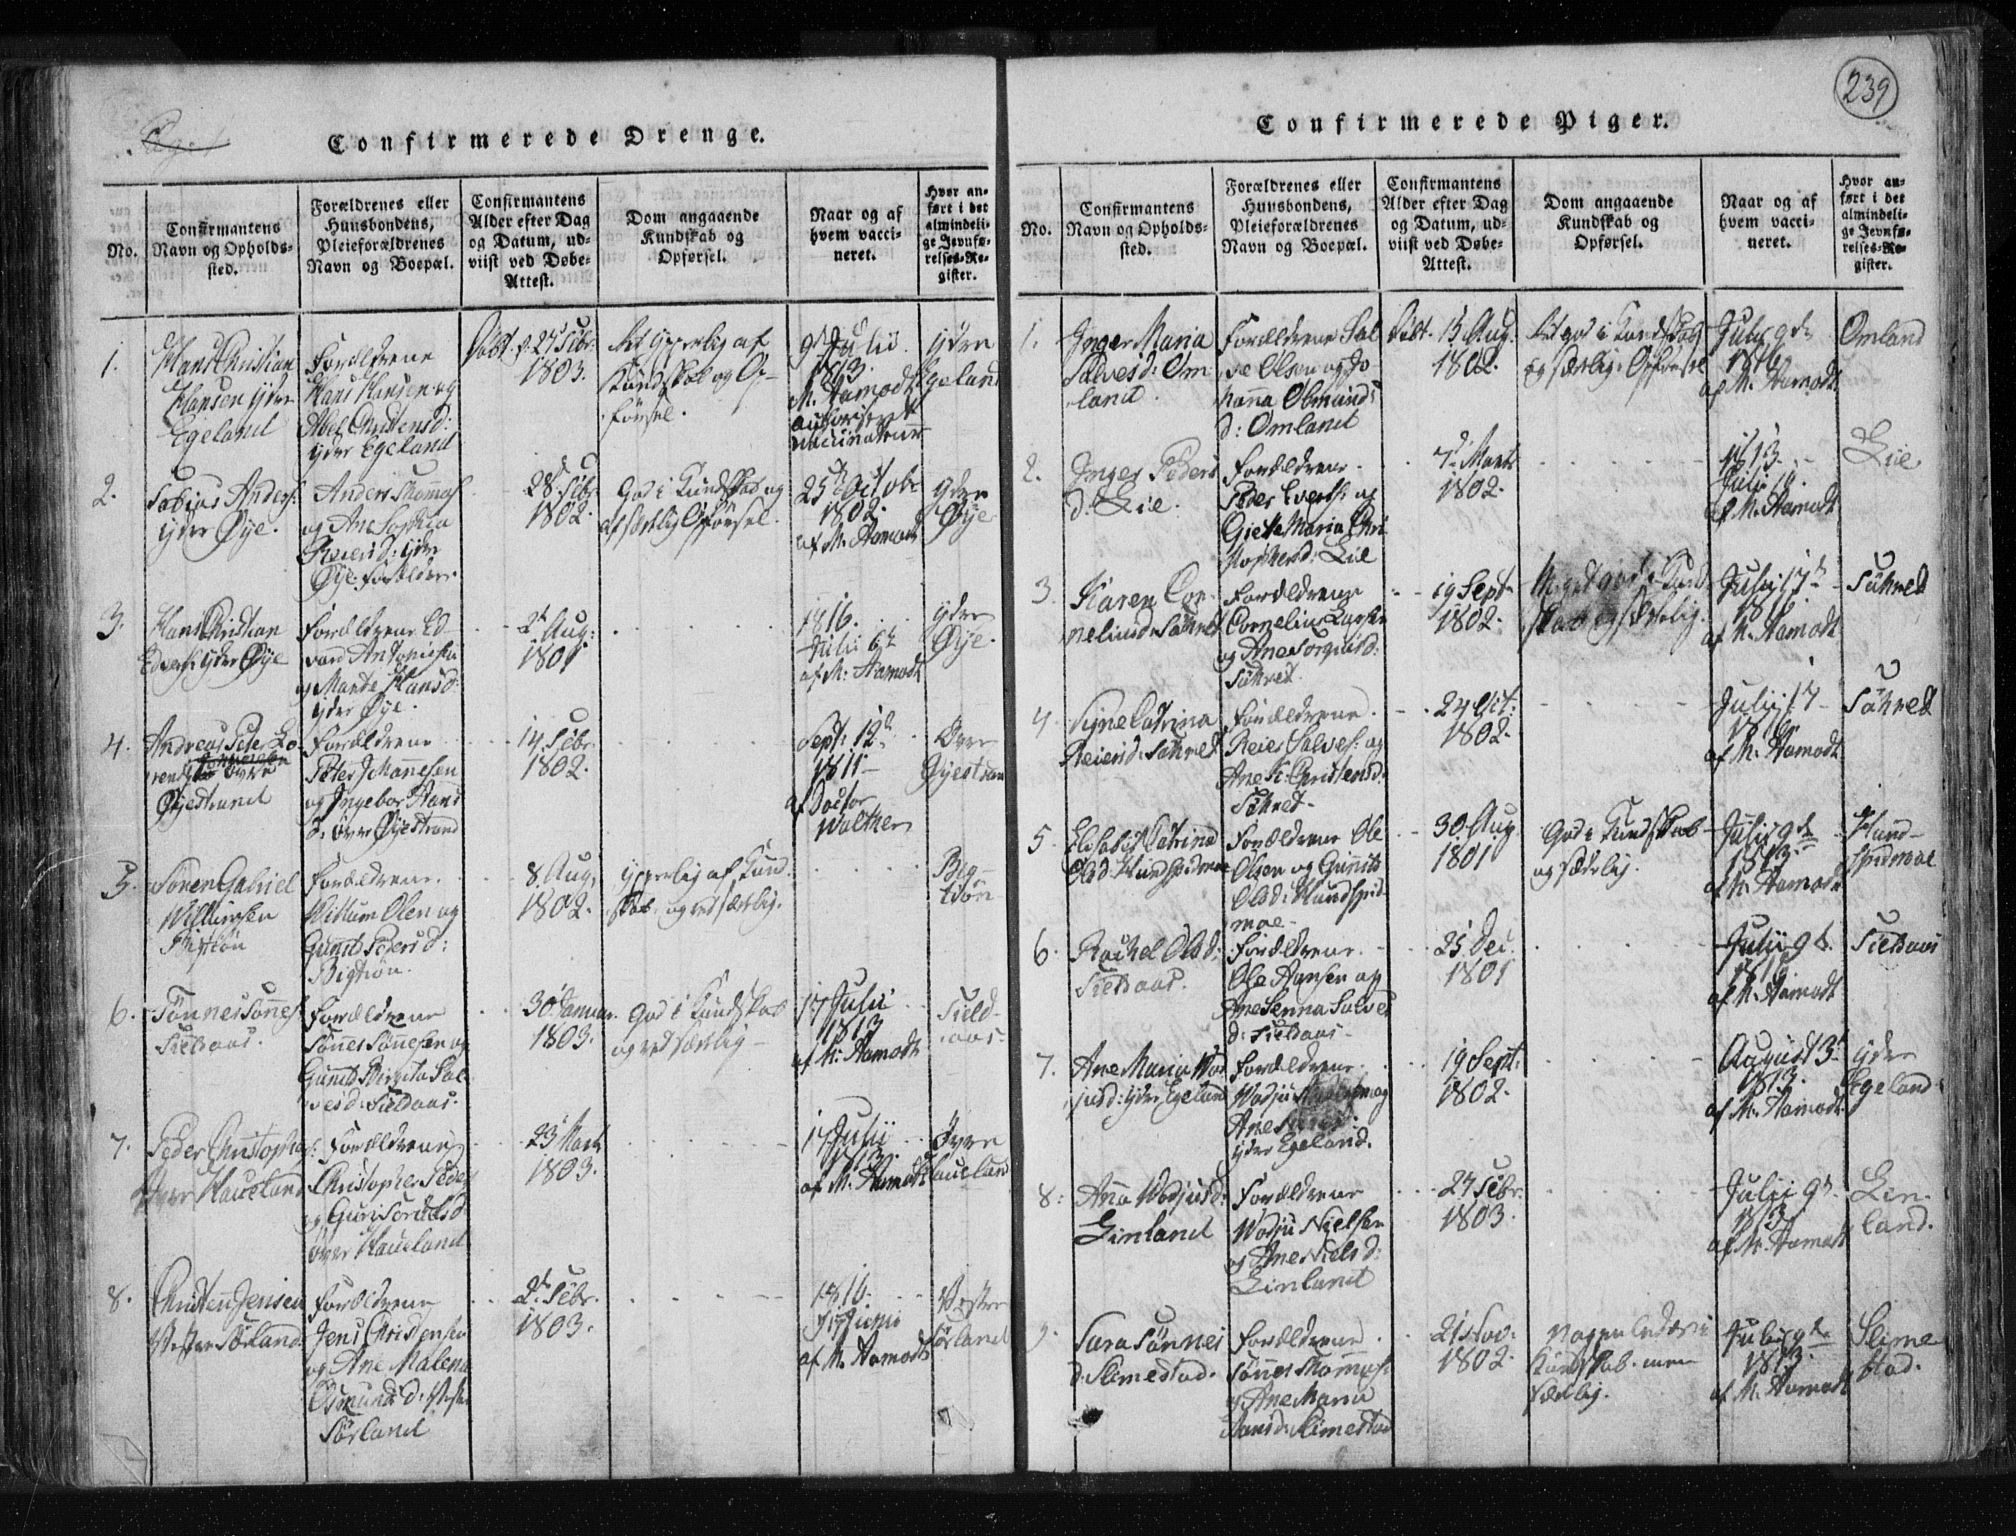 239
Confirmerede Drenge.
No.
Confirmantens
Navn og Opholds-
sted.
Forældrenes eller
Huusbondens,
Pleieforældrenes
Navn og Boepæl.
Confirmantens
Alder efter Dag
og Datum, ud-
viist ved Døbe-
Attest.
Dom angaaende
Kundskab og
Opførsel.
Naar og af
hvem vacci-
neret.
Hvor an-
ført i det
almindeli-
ge Jevnfø-
relses-Re-
gister.
1.
Hans Christian
Hansen ydre
Egeland
Forældrene
Hans Hansen og
Abel Christensd:
ydre Egeland
27 Febr:
1803.
Kundskab og Op-
førsel.
9d Julii
1813.
M. Aamodt
authoriseret
vaccinateur
ydre
Egeland
2.
Tobias Anders:
ydre Øye.
Anders Thomas:
og Ane Sophia
Reiersd: ydre
Øye. forældre.
28 Febr
1802.
God i Kundskab og
af sædelig Opførsel.
25 Octobr
1802.
af M. Aamodt
ydre
Øye
3.
Hans Christian
Edvards: ydre Øye
Forældrene Ed
vard Antonisen
og Marthe Hansd:
ydre Øye.
2d Aug:
1801
1816.
Julii 6d
af M: Aamodt
ydre
Øye.
4.
Andreas Peter Lo
rends
øvre
Øyestrand
Forældrene
Peter Johannesen
og Ingebor Hans
d: øvre Øyestrand
14 Febr
1802.
Sept: 12d
1811
af Doctor
Walther
Øvre
Øyestran
5.
Søren Gabriel
Willumsen
Bigtiøn
Forældrene
Willum Olsen og
Gunild Pedersd:
Bigtiøn.
8. Aug.
1802.
ypperlig af Kund
skab og ret sædelig.
Big-
tiøn
6.
Tønnes Tønnes:
Fieldaas.
Forældrene
Tønnes Tønnesen og
Gunild Birgita Sal
vesd: Fieldaas.
30 Januar.
1803.
God i Kundskab
og ret sædelig
17 Julii
1813
af M: Aamodt
Field-
aas
7.
Peder Christophers:
Øvre Haueland
Forældrene
Christopher Peders:
og Guri
øvre Haueland
23 Marts
1803.
17 Julii
1813.
af M. Aamodt
Øvre
Haueland
8.
Christen Jensen
Vestre Sørland.
Forældrene
Jens Christensen
og Ane Malena
Osmunds d: Vestre
Sørland
2d Febr.
1803.
1816.
af M. Aamodt
Vestre
Sørland
Confirmerede Piger.
No.
Confirmantens
Navn og Opholds-
sted.
Forældrenes eller
Huusbondens,
Pleieforældrenes
Navn og Boepæl.
Confirmantens
Alder efter Dag
og Datum, ud-
viist ved Døbe-
Attest.
Dom angaaende
Kundskab og
Opførsel.
Naar og af
hvem vacci-
neret.
Hvor an-
ført i det
almindeli-
ge Jevnfø-
relses-Re-
gister.
1.
Inger Maria
Salvesd: Om
land.
Forældrene Sal
ve Olsen og Jo
hanna Osmunds
d: Omland
13 Aug.
1802.
god i Kundskab
og sædelig Opførsel
July 9de
af M. Aamodt
Omland
2.
Inger Peders
d: Lie.
Forældrene
Peder Everts: og
Giete Maria Chri
stophersd: Lie
7d Marts
1802.
1813.
Julii
af M. Aamodt
Lie
3.
Karen Cor
neliusd: Sahred
Forældrene
Cornelius Larsen
og Ane Torgiusd:
Sahred.
19 Sept
1802.
Meget god i Kund
skab og sædelig.
July 17d
af M. Aamodt
Sahred
4.
Signe Catrina
Reiersd: Sahred
Forældrene
Reier Salves: og
Ane K: Christensd:
Sahred.
24 Oct:
1802.
July 17
af M. Aamodt
Sahred
5.
Elisabet Catrina
Olsd: Hundspidmoe
Forældrene Ole
Olsen og Gunild
Olsd: Hundspid
moe
30. Aug
1801
God i Kundskab
og sædelig.
July 9de
1813.
af M. Aamodt
Hund-
spidmoe
6.
Rachel Olsd:
Fieldaas.
Forældrene
Ole Hansen og
Ane Senna Salves
d: Fieldaas
25 Dec.
1801
Julii 9d.
af M. Aamodt
Fieldaas
7.
Ane Maria Vod
jusd: ydre Egeland
Forældrene
Vodju
Ane
ydre Egeland.
19 Sept:
1802.
August 3d
1813.
af M. Aamodt
ydre
Egeland
8.
Anna Vodjusd:
Linland
Forældrene
Vodju Nielsen
og Ane Nielsd:
Linland
27 Febr.
1803.
Julii 9d.
1813
af M. Aamodt
Lin-
land.
9.
Sara Tønnes
d: Slimestad.
Forældrene
Tønnes Thomas:
og Ane Maria
Hansd: Slimestad
21 Nov:
1802.
Kundskab men
sædelig.
July 9de
1813.
af M. Aamodt
Slime
stad.